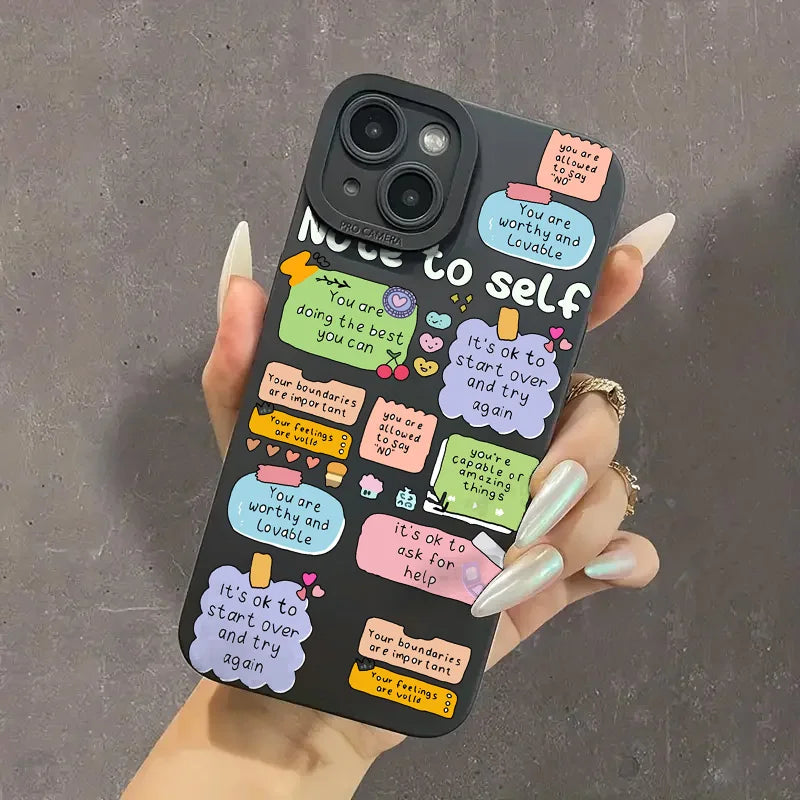 PRO CAMERA
Note to self
you are
allowed
to say
"NO"
You are
worthy and
Lovable
You are
doing the best
you can
It's ok to
start over
and try
again
Your boundaries
are important
Your feelings
are valid
you are
allowed
to say
"NO"
you're
capable of
amazing
things
You are
worthy and
Lovable
it's ok to
ask for
help
It's ok to
start over
and try
again
Your boundaries
are important
Your feelings
are valid